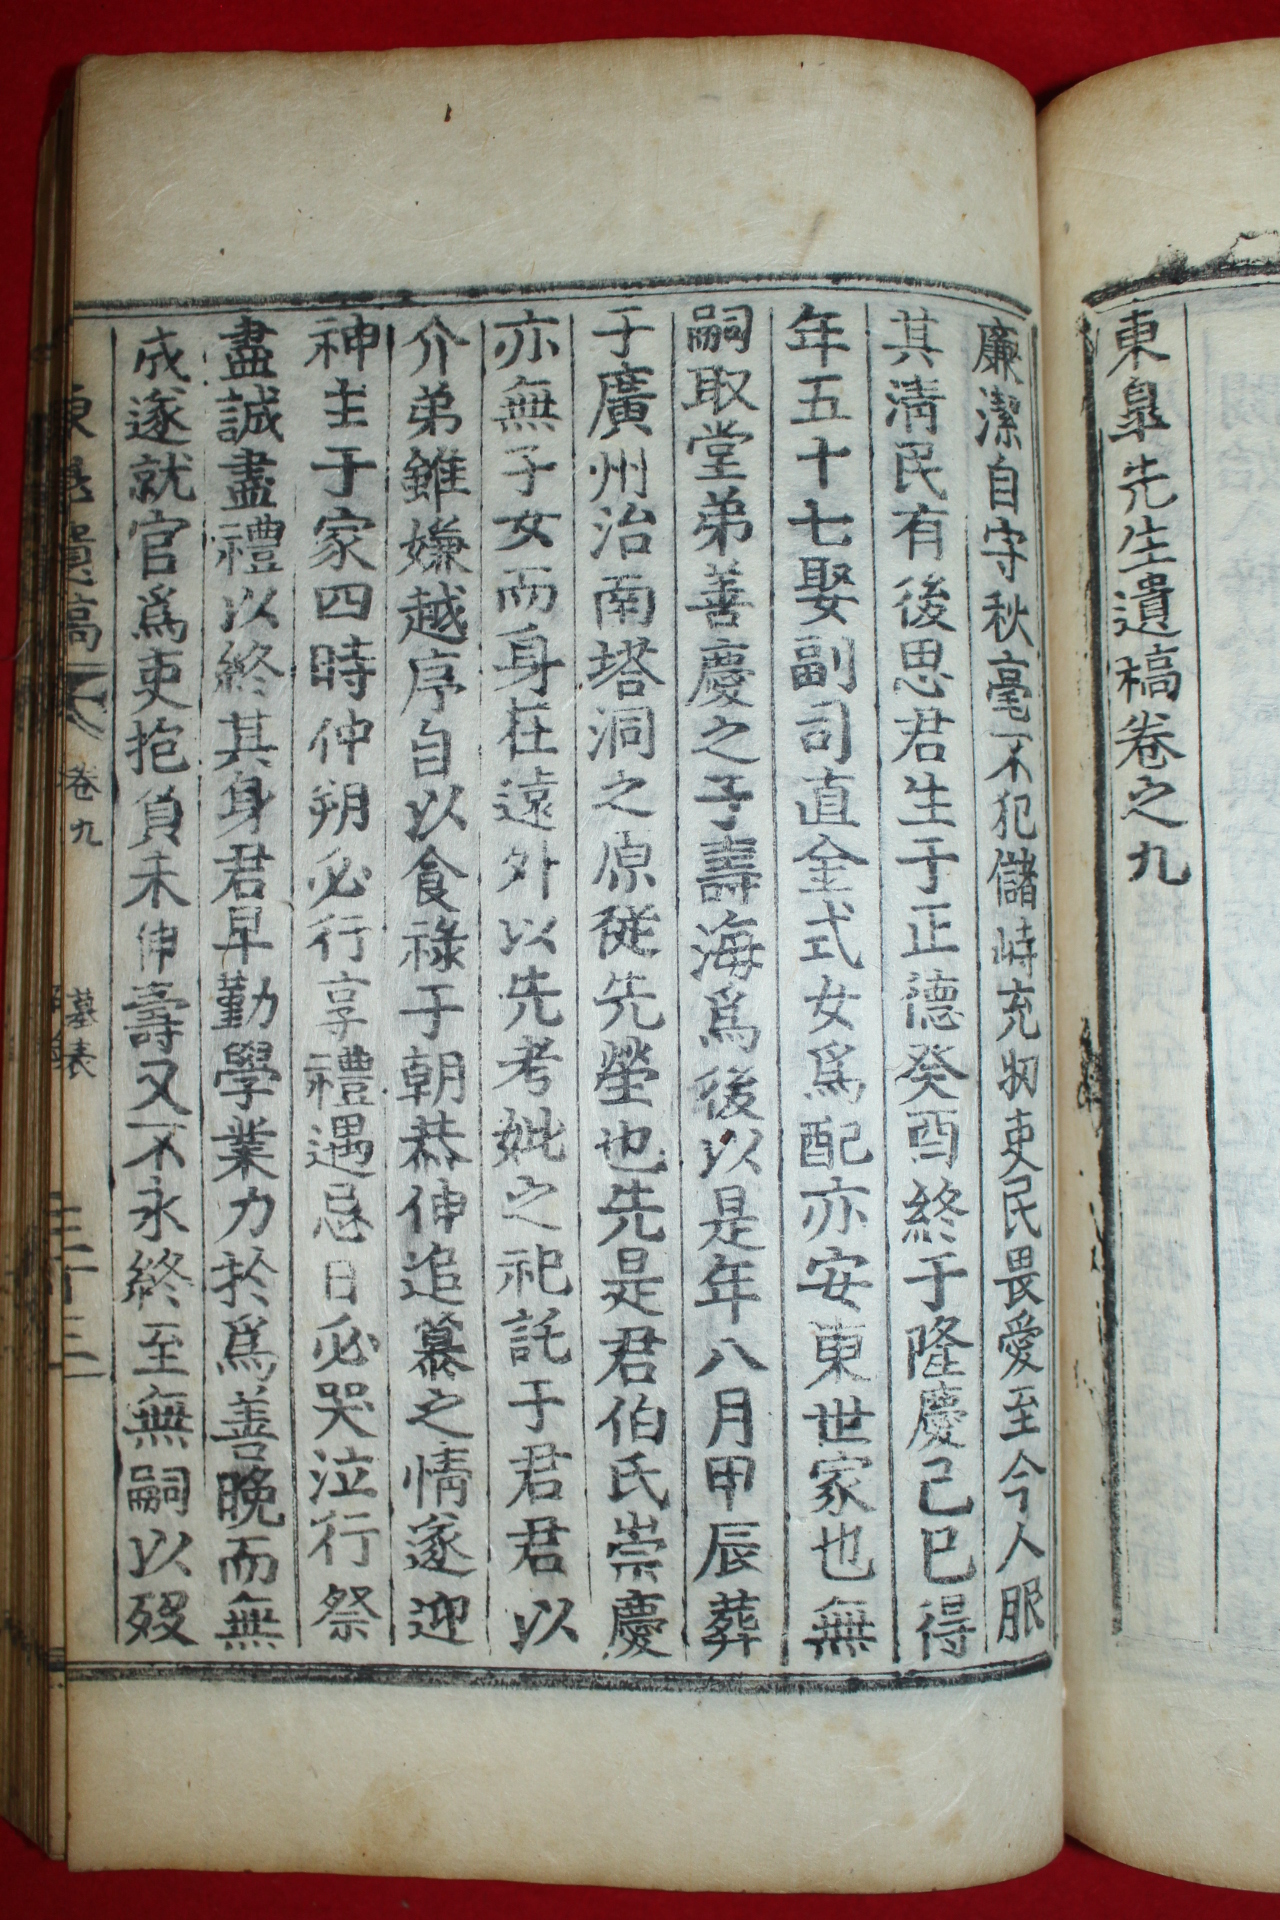 東臯先生遺稿卷之九
廉潔自守秋毫不犯儲峙充牣吏民畏愛至今人服
其淸民有後思君生于正德癸酉終于隆慶己巳得
年五十七娶副司直金式女爲配亦安東世家也無
嗣取堂弟善慶之子壽海爲後以是年八月甲辰葬
于廣州治南塔洞之原從先塋也先是君伯氏崇慶
亦無子女而身在遠外以先考妣之祀託于君君以
介弟雖嫌越序自以食祿于朝恭伸追慕之情遂迎
神主于家四時仲朔必行享禮遇忌日必哭泣行祭
盡誠盡禮以終其身君早勤學業力於爲善晩而無
成遂就官爲吏抱負未伸壽又不永終至無嗣以歿
東臯遺稿 卷九 墓表 三十三